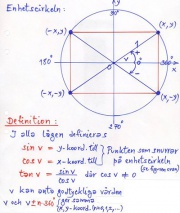 Enhetscirkeln:
y
90°
(-x,y)
(x,y)
1
180°
0
v
360°
0°
x
(-x,-y)
(x,-y)
270°
Definition:
I alla lägen definieras
sin v = y-koord. till
cos v = x-koord. till
Punkten som snurrar
på enhetscirkeln
(se figuren ovan)
tan v = sin v / cos v då cos v ≠ 0
v kan anta godtyckliga värden
v och v ± n·360° ger samma
x, y-koord.